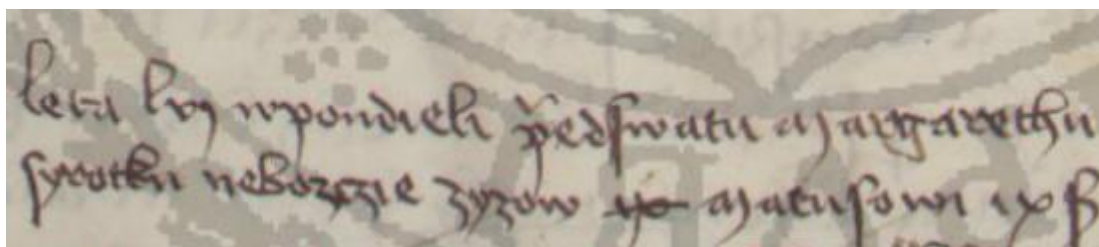 leta lvj wpondieli p̃edswatu Margarethu
syrotku nebozczie zyzow ix Matusowi ix ß